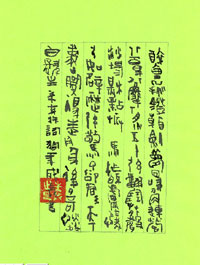 醉里挑燈看劍夢回吹角連營
八百里分麾下炙五十弦翻塞外聲
沙場秋點兵 馬作的盧飛快
弓如霹靂弦驚 了卻君王天下
事贏得生前身後名可憐
白發生 辛棄疾詞
書